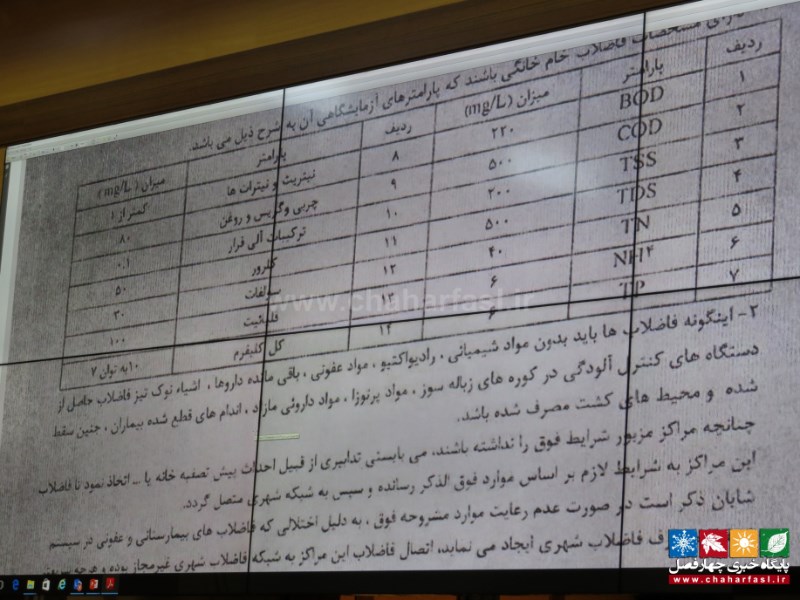 دارای مشخصات فاضلاب خام خانگی باشند که پارامترهای آزمایشگاهی آن به شرح ذیل می باشد.
ردیف پارامتر میزان (mg/L) ردیف پارامتر میزان (mg/L)
۱ BOD ۲۲۰ ۸ نیتریت و نیترات ها کمتر از ۱
۲ COD ۵۰۰ ۹ چربی وگریس و روغن ۸۰
۳ TSS ۲۰۰ ۱۰ ترکیبات آلی فرار ۰.۱
۴ TDS ۵۰۰ ۱۱ کلرور ۵۰
۵ TN ۴۰ ۱۲ سولفات ۳۰
۶ NH۴ ۶ ۱۳ قلیائیت ۱۰۰
۷ TP ۶ ۱۴ کل کلیفرم ۱۰به توان ۷
۲- اینگونه فاضلاب ها باید بدون مواد شیمیائی ، رادیواکتیو ، مواد عفونی ، باقی مانده داروها ، اشیاء نوک تیز فاضلاب حاصل از
دستگاه های کنترل آلودگی در کوره های زباله سوز ، مواد پرتوزا ، مواد داروئی مازاد ، اندام های قطع شده بیماران ، جنین سقط
شده و محیط های کشت مصرف شده باشد.
چنانچه مراکز مزبور شرایط فوق را نداشته باشند، می بایستی تدابیری از قبیل احداث پیش تصفیه خانه یا ... اتخاذ نمود تا فاضلاب
این مراکز به شرایط لازم بر اساس موارد فوق الذکر رسانده و سپس به شبکه شهری متصل گردد.
شایان ذکر است در صورت عدم رعایت موارد مشروحه فوق ، به دلیل اختلالی که فاضلاب های بیمارستانی و عفونی در سیستم
فاضلاب شهری ایجاد می نماید، اتصال فاضلاب این مراکز به شبکه فاضلاب شهری غیرمجاز بوده و
www.chaharfasl.ir
پایگاه خبری چهارفصل
www.chaharfasl.ir